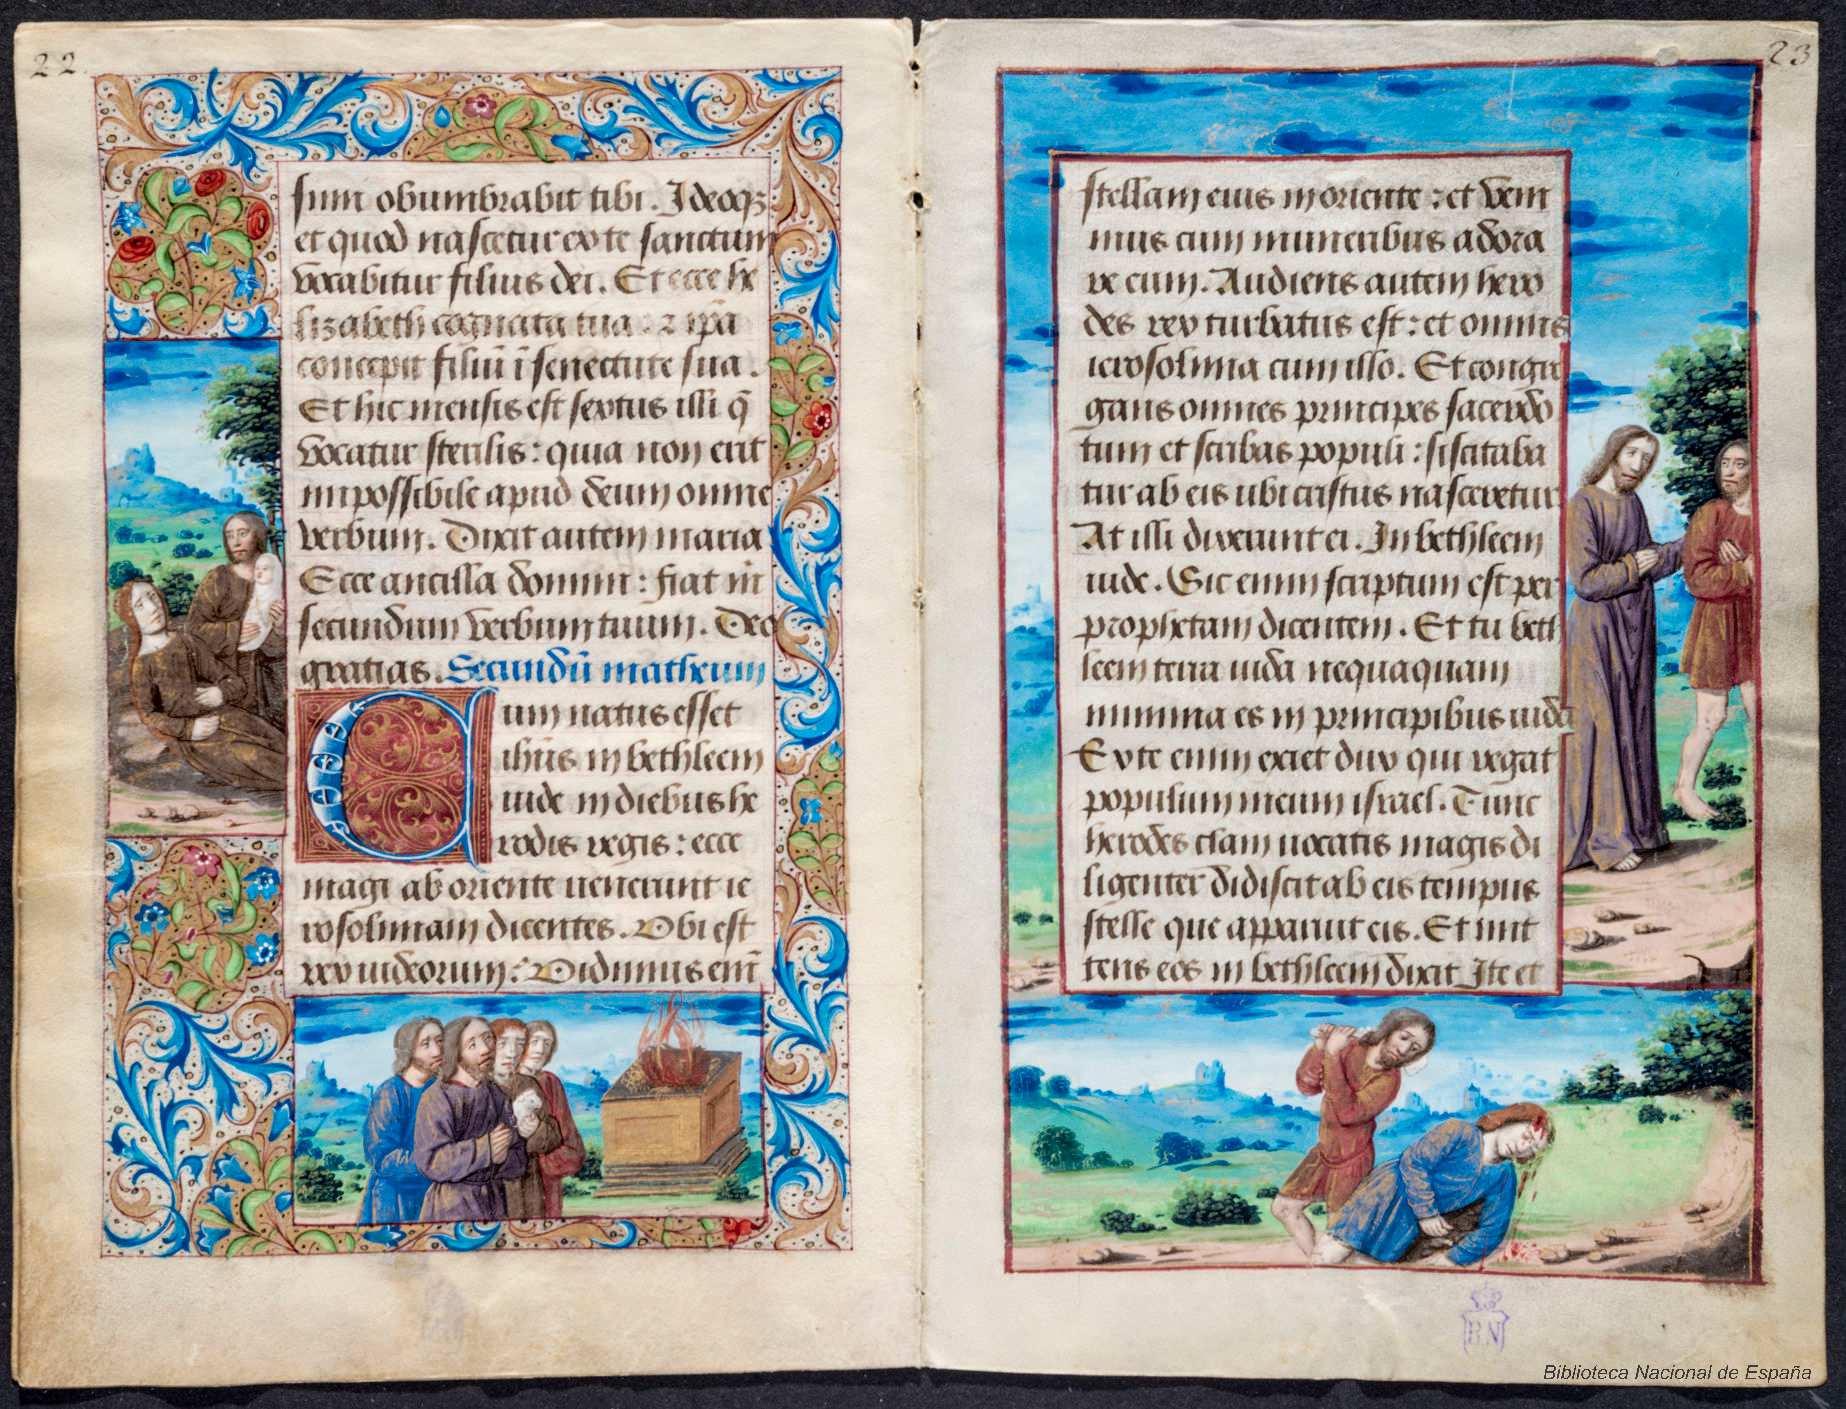 22.
sum obumbrabit tibi. Ideoqꝫ
et quod nascetur ex te sanctum
vocabitur filius dei. Et ecce he
lizabeth cognata tua. ⁊ ip̄a
concepit filiū ī senectute sua.
Et hic mensis est sextus illi q̄
vocatur sterilis: quia non erit
impossibile apud deum omne
verbum. Dixit autem maria
Ecce ancilla domini: fiat m̄
secundum verbum tuum. Deo
gratias. Secundū matheum
Cum natus esset
ihūs in bethleem
iude in diebus he
rodis regis: ecce
magi ab oriente uenerunt ie
rosolimam dicentes. Vbi est
rex iudeorum? Vidimus enī
23
stellam eius in oriente: et veni
mus cum muneribus adora
re eum. Audiens autem hero
des rex turbatus est: et omnis
ierosolima cum illo. Et congre
gans omnes principes sacerdo
tum et scribas populi: siscitaba
tur ab eis ubi cristus nasceretur
At illi dixerunt ei. In bethleem
iude. Sic enim scriptum est per
prophetam dicentem. Et tu beth
leem terra iuda nequaquam
minima es in principibus iuda
Ex te enim exiet dux qui regat
populum meum israel. Tunc
herodes clam uocatis magis di
ligenter didiscit ab eis tempus
stelle que apparuit eis. Et mit
tens eos in bethleem dixit Ite et
BN
Biblioteca Nacional de España